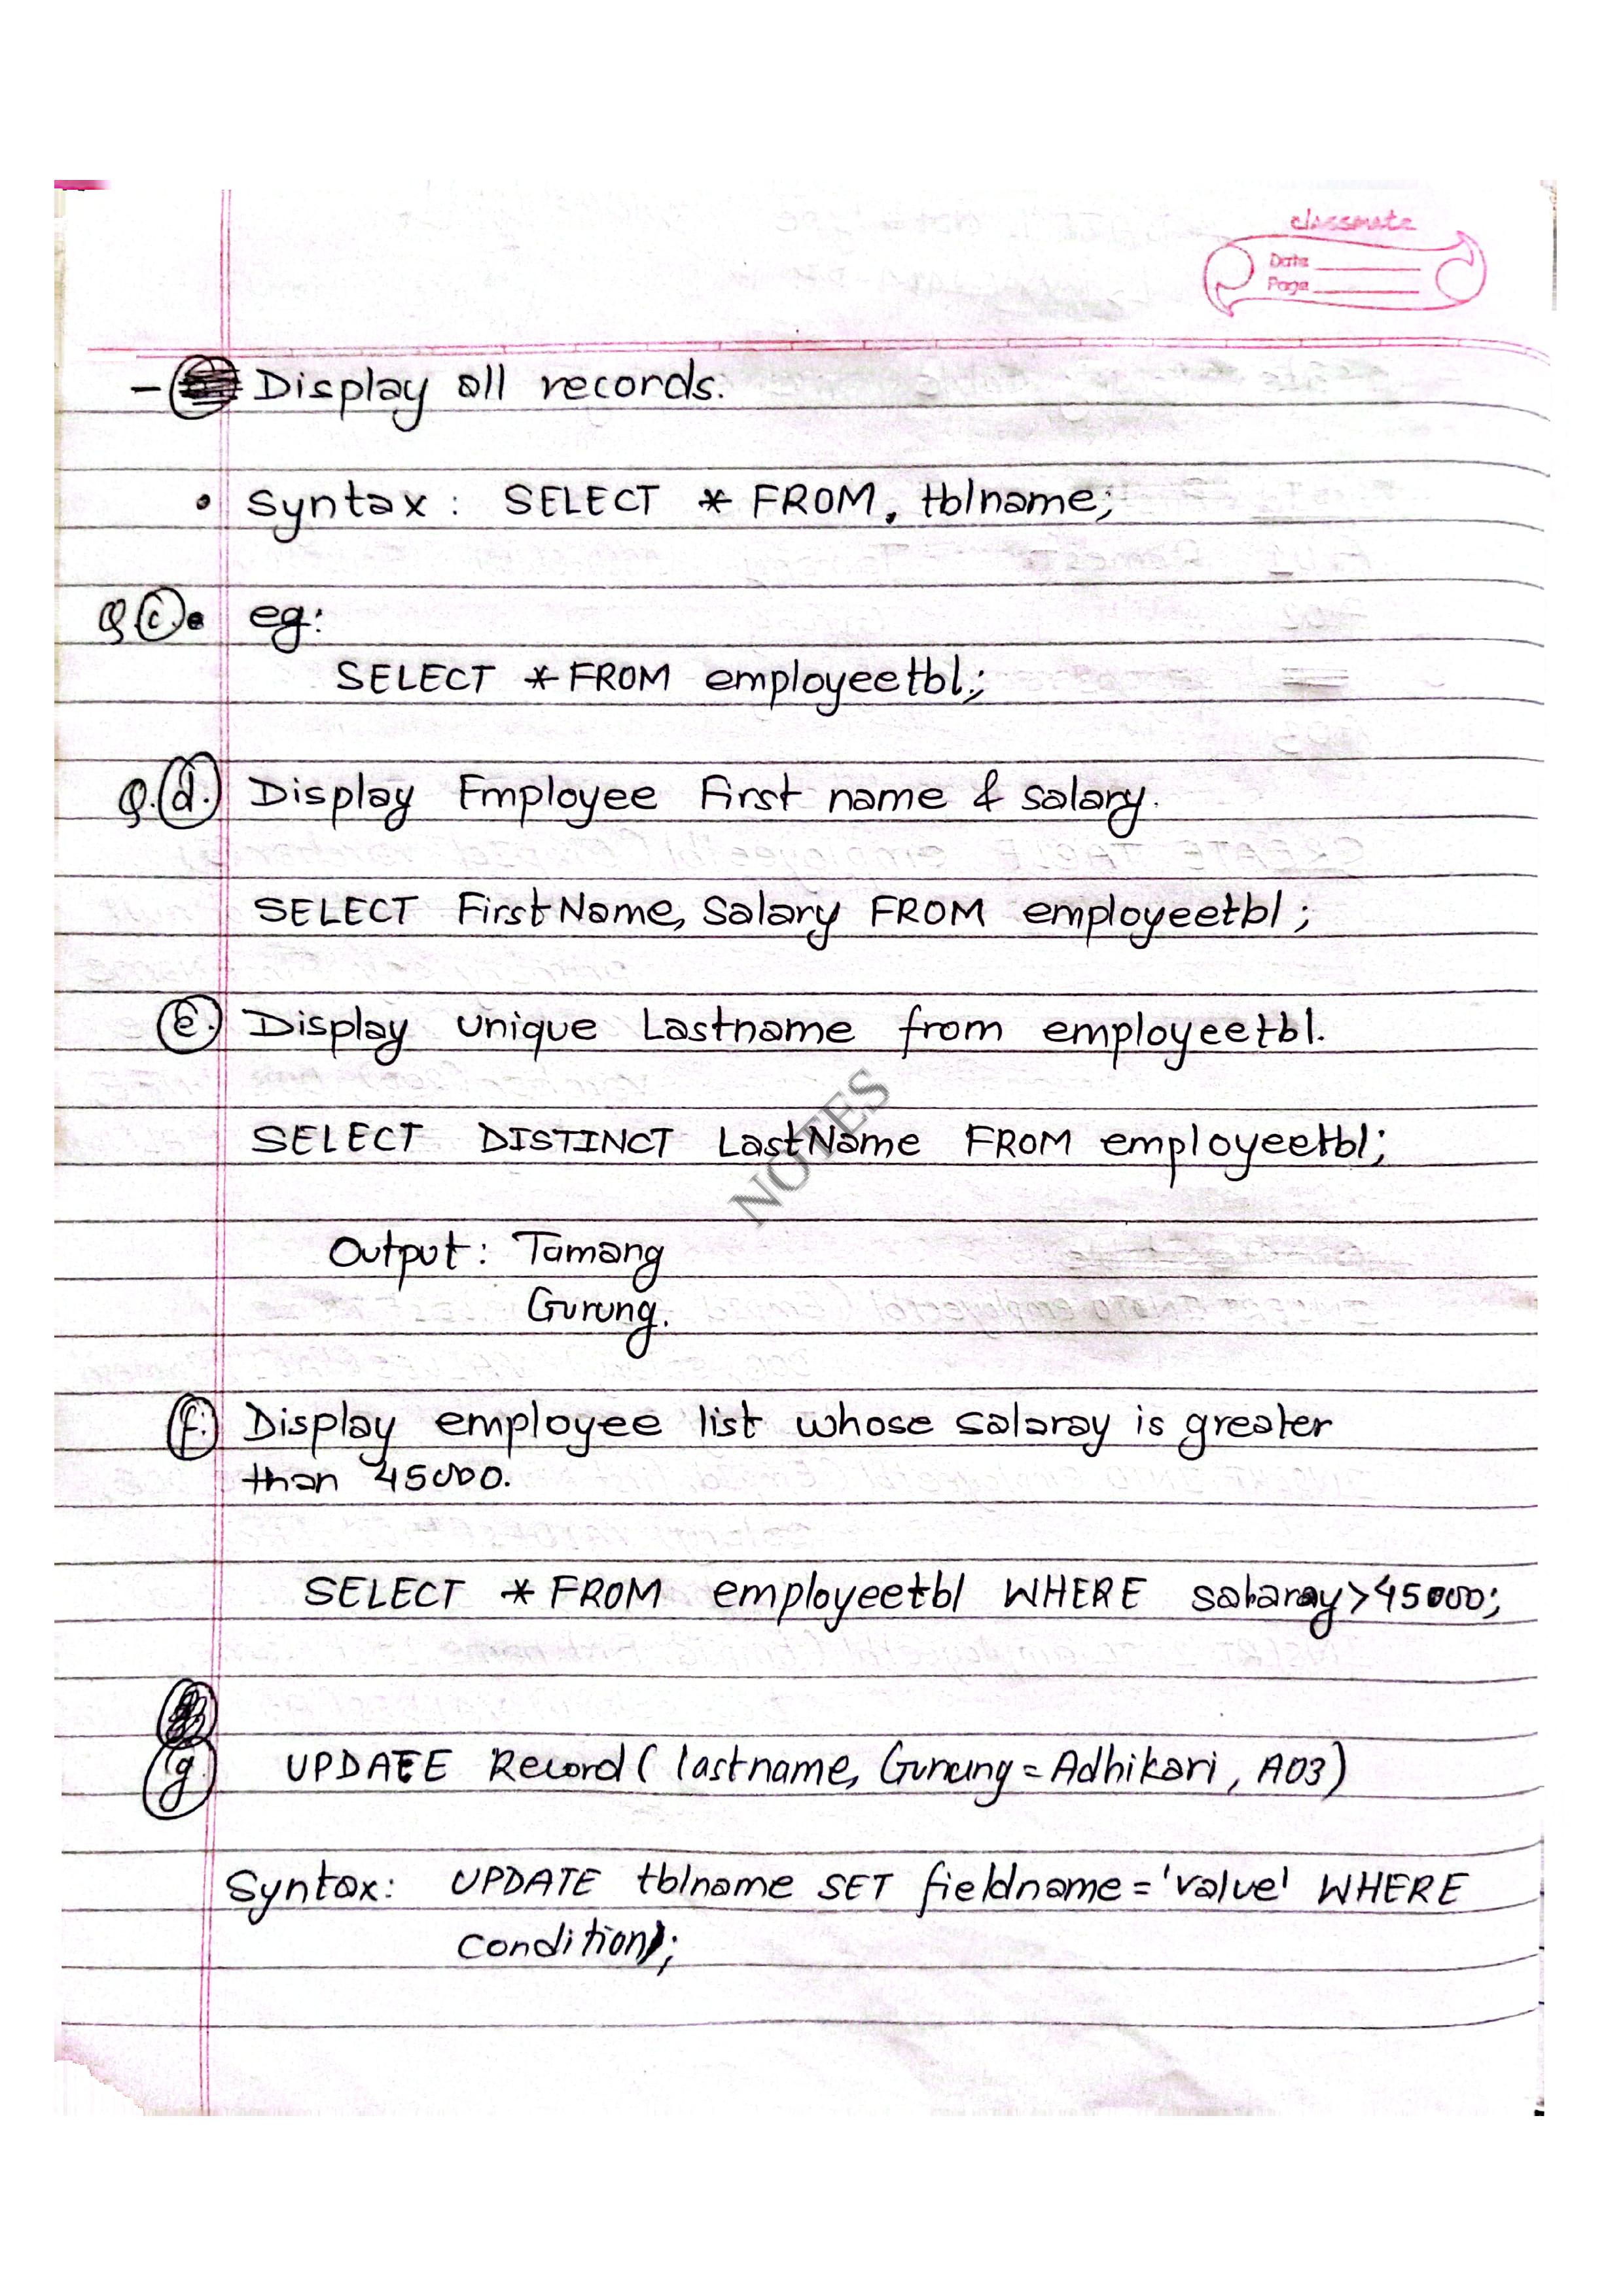 classmate
Date
Page
- Display all records.
• Syntax : SELECT * FROM, tblname;
Q (c). • eg:
SELECT * FROM employeetbl;
Q. (d.) Display Employee First name & salary.
SELECT FirstName, Salary FROM employeetbl ;
(e.) Display unique Lastname from employeetbl.
SELECT DISTINCT LastName FROM employeetbl;
NOTES
Output : Tamang
Gurung.
(f.) Display employee list whose salaray is greater
than 45000.
SELECT * FROM employeetbl WHERE salaray>45000;
(g.) UPDATE Record ( lastname, Gurung = Adhikari , A03)
Syntax: UPDATE tblname SET fieldname = 'value' WHERE
condition);